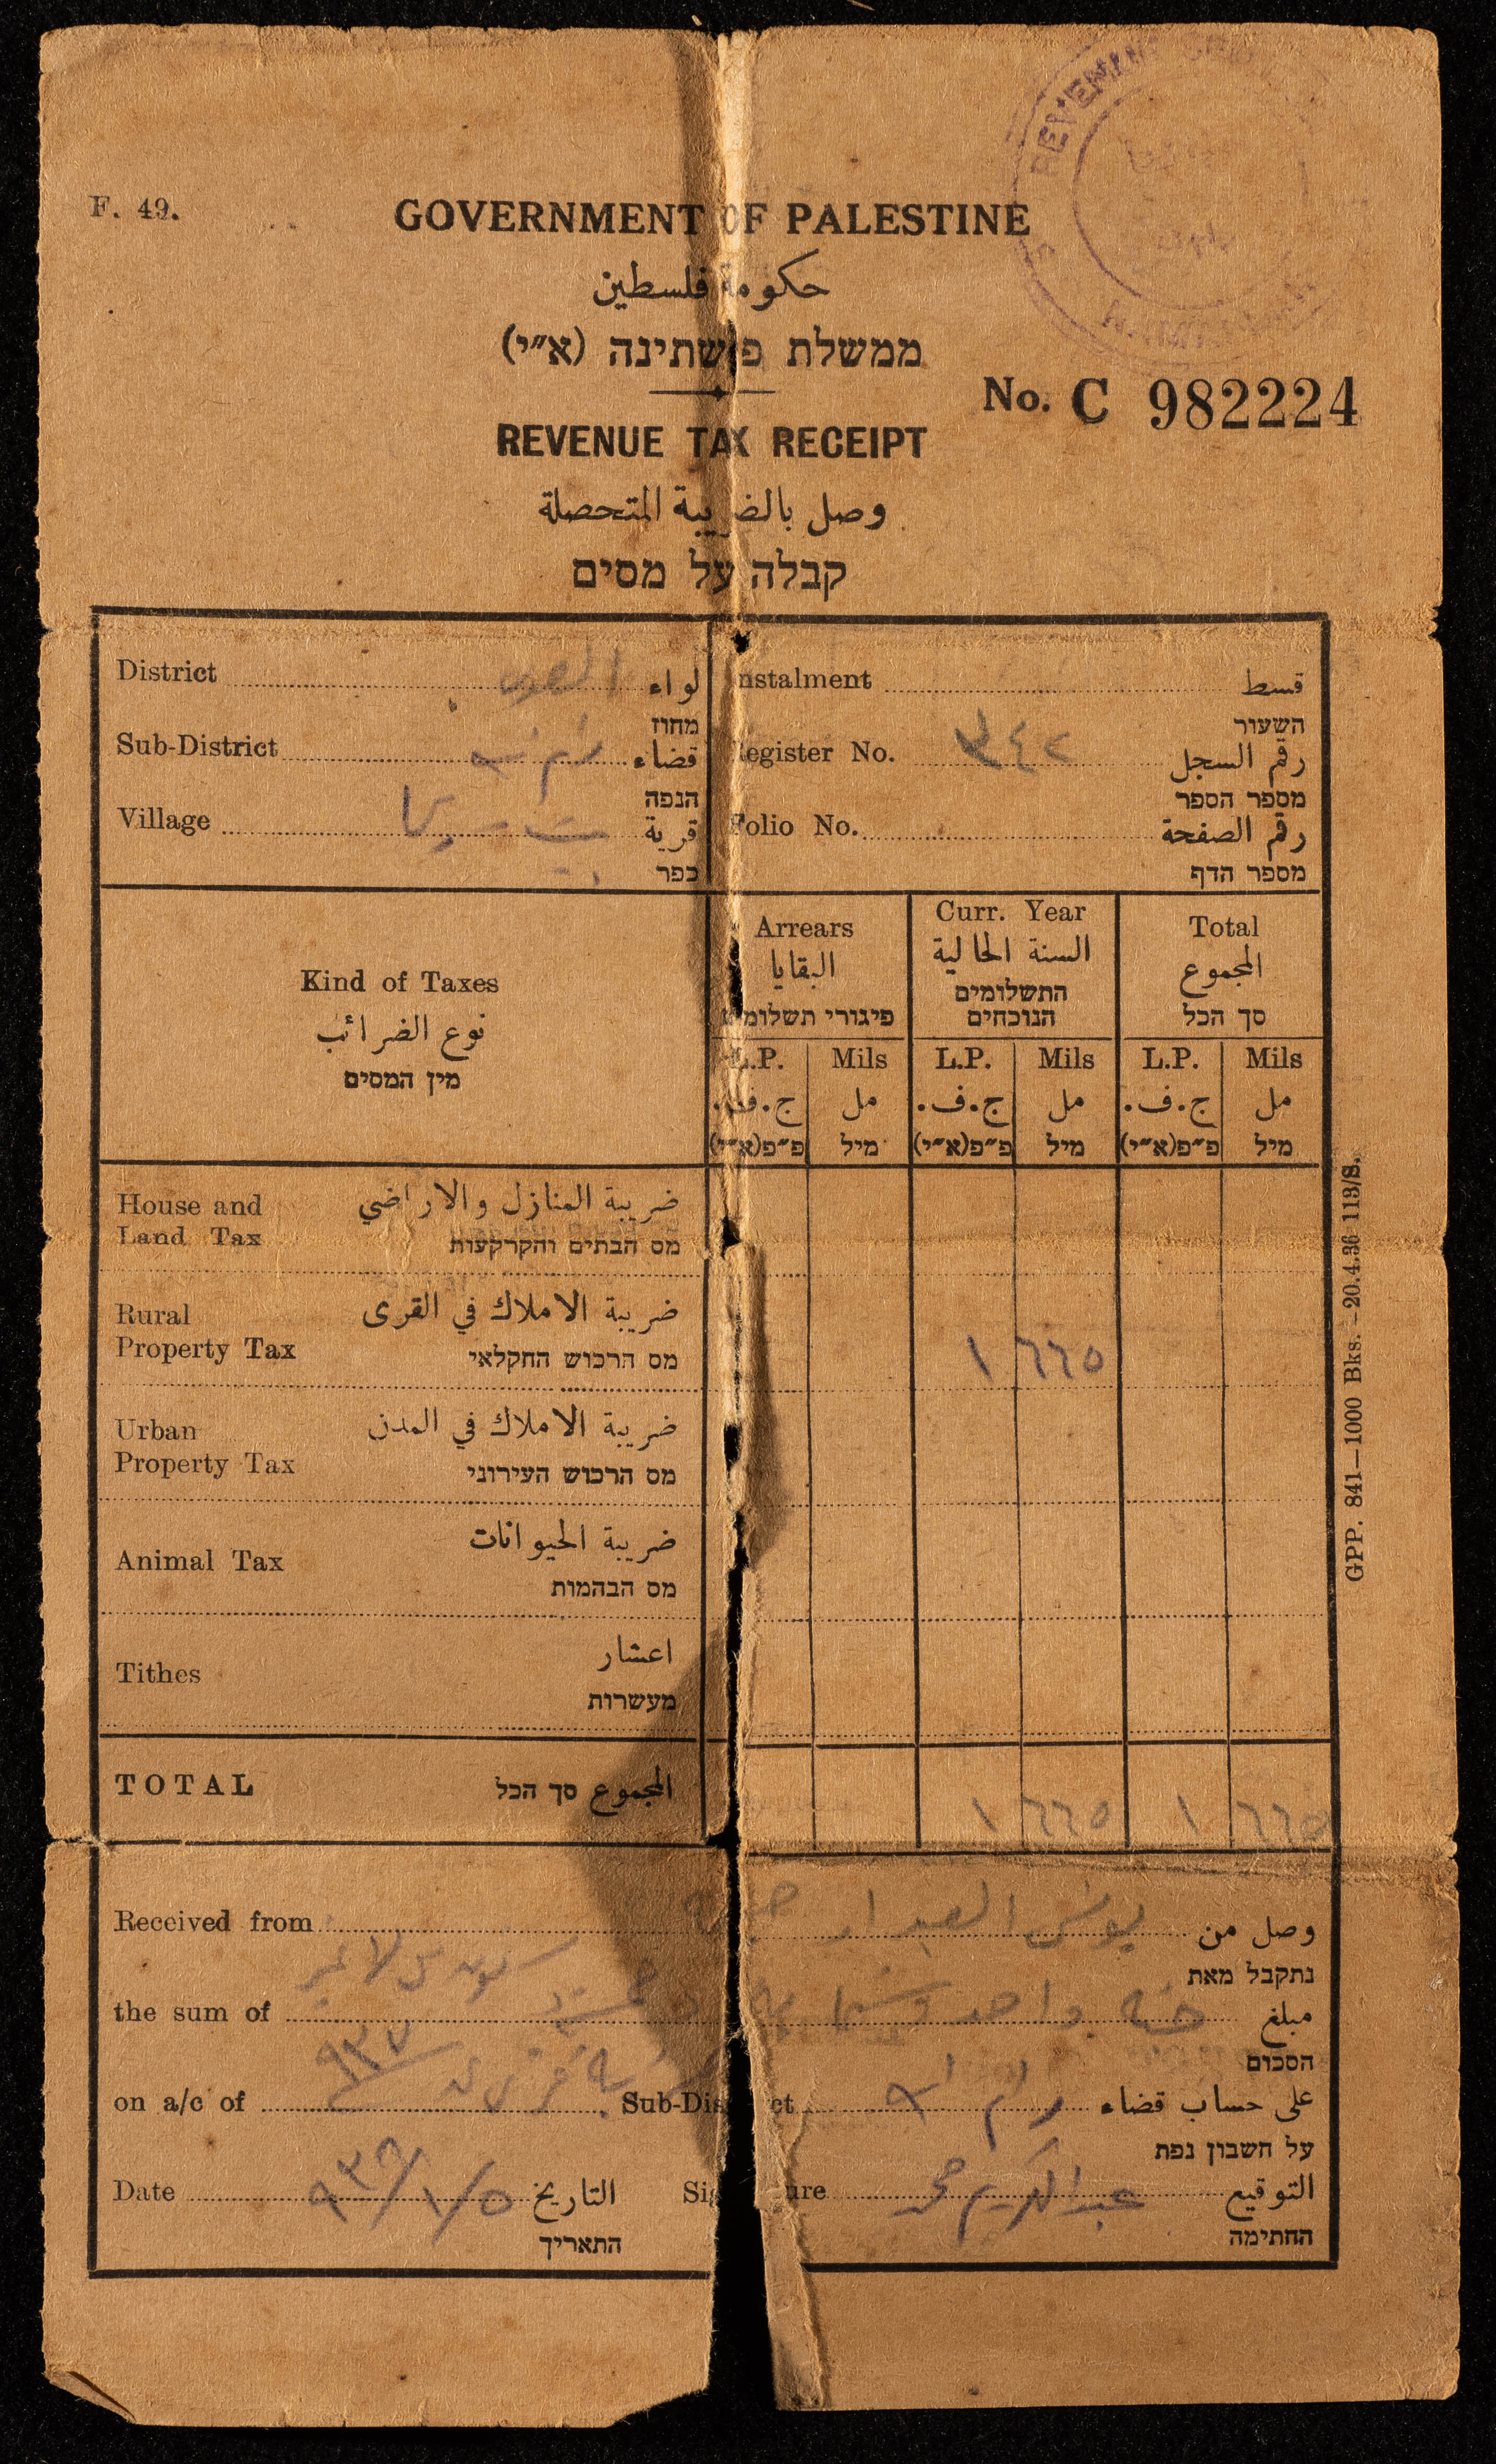 F. 49.
GOVERNMENT OF PALESTINE
حكومة فلسطين
ממשלת פלשתינה (א״י)
No. C 982224
REVENUE TAX RECEIPT
وصل بالضريبة المتحصلة
קבלה על מסים
District القدس لواء
מחוז
Sub-District قضاء
הנפה
Village قرية
כפר
Instalment قسط
השעור
Register No. ٣٤٢ رقم السجل
מספר הספר
Folio No. رقم الصفحة
מספר הדף
Kind of Taxes
نوع الضرائب
מין המסים
Arrears
البقايا
פיגורי תשלומים
Curr. Year
السنة الحالية
התשלומים
הנוכחים
Total
المجموع
סך הכל
L.P. Mils L.P. Mils L.P. Mils
ج.ف. مل ج.ف. مل ج.ف. مل
פ״פ(א״י) מיל פ״פ(א״י) מיל פ״פ(א״י) מיל
House and ضريبة المنازل والاراضي
Land Tax מס הבתים והקרקעות
Rural ضريبة الاملاك في القرى
Property Tax מס הרכוש החקלאי
١ ٦٦٥
Urban ضريبة الاملاك في المدن
Property Tax מס הרכוש העירוני
Animal Tax ضريبة الحيوانات
מס הבהמות
Tithes اعشار
מעשרות
TOTAL المجموع סך הכל
١ ٦٦٥ ١ ٦٦٥
Received from يونس العبد وصل من
נתקבל מאת
the sum of جنيه واحد مبلغ
הסכום
on a/c of ٩٣٧ Sub-District رام الله على حساب قضاء
על חשבון נפת
Date ٩٣٨/١/٥ التاريخ Signature عبد الكريم التوقيع
התאריך החתימה
GPP. 841—1000 Bks.—20.4.36 113/S.
REVENUE